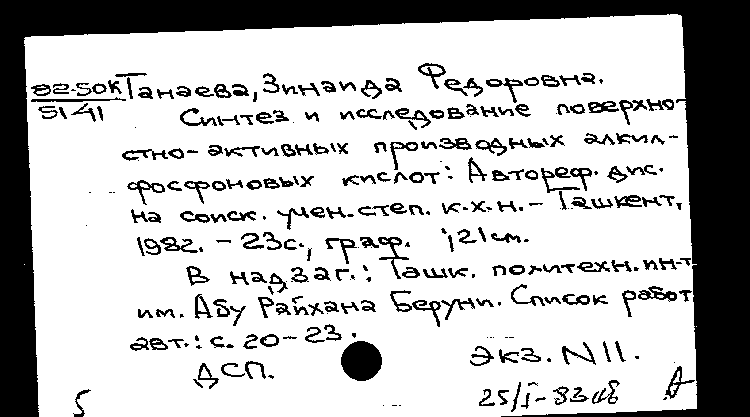 82-50К Танаева, Зинаида Федоровна.
5141 Синтез и исследование поверхно-
стно-активных производных алкил-
фосфоновых кислот: Автореф. дис.
на соиск. учен. степ. к.х.н. - Ташкент,
1982г. - 23с., граф. ; 21 см.
В надзаг.: Ташк. политехн. ин-т
им. Абу Райхана Беруни. Список работ
авт.: с. 20-23.
ДСП. Экз. N 11.
5 25/I-83